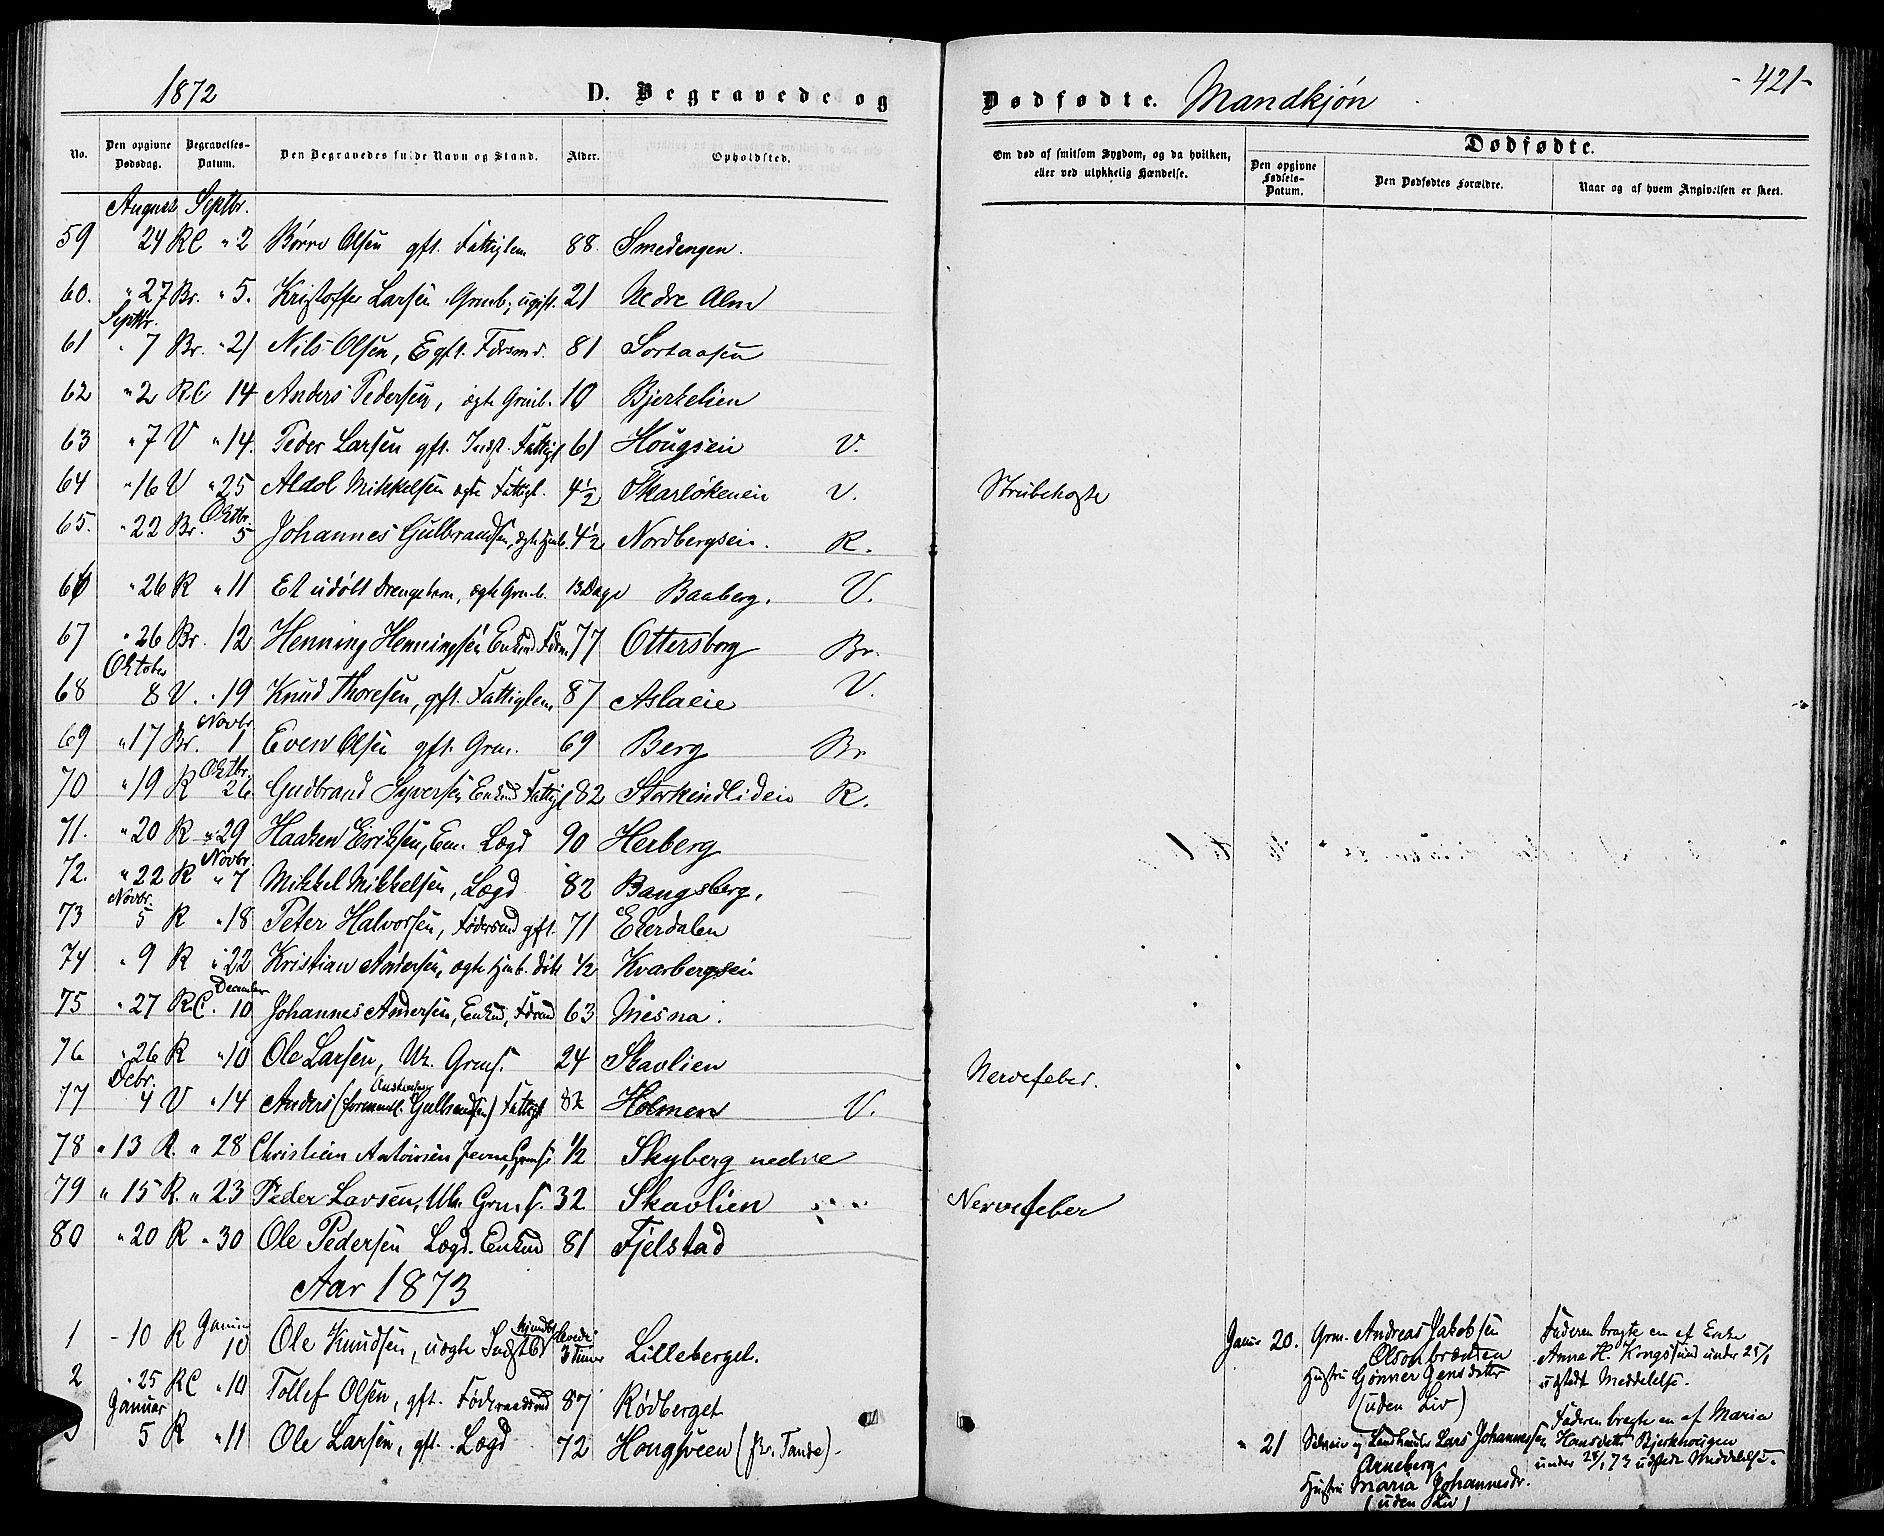 1872
D. Begravede og
No.
Den opgivne Dødsdag.
Begravelses-Datum.
Den Begravedes fulde Navn og Stand.
Alder.
Opholdsted.
August Septbr.
59 24 RC " 2 Børre Olsen gft. Fattiglem 88. Smedengen.
60. " 27 Br. " 5. Kristoffer Larsen Grmb; ugift. 21 Nedre Alm
Septbr.
61 " 7 Br. " 21 Nils Olsen, E gft. 81 Sortaasen
62 " 2 RC 14 Anders Pedersen, ægte Grmb. 10 Bjerkelien
63 " 7 V " 14. Peder Larsen gft. Indst. Fattigl 61 Hougseie V.
64 " 16 V " 25 Aldol Mikkelsen ægte Fattigl. 4½ Skarløkeneie V.
Oktbr.
65. " 22 Br. 5 Johannes Gulbrandsen, ægte 4½ Nordbergseie. R.
66 " 26 R " 11 Et udøbt Drengebarn, ægte Grmb. 13 Dage Baaberg. V.
67 " 26 Br. 12 Henning Henningsen Enkmd 77 Ottersborg Br.
Oktober
68 8 V. " 19 Knud Thoresen, gft. Fattiglem 87 Aslaeie V.
Novbr
69 " 17 Br. 1 Even Olsen gft. Grm. 69 Berg Br
Oktbr.
70 " 19 R 26 Gudbrand Syversen Enkmd Fattigl 82 Storkindlideie R.
71. " 20 R " 29 Haaken Eriksen, Em. Lægd 90 Herberg
Novbr.
72. " 22 R " 7 Mikkel Mikkelsen, Lægd 82 Bangsberg.
Novbr.
73 5 R " 18 Peter Halvorsen, gft. 71 Ekerdalen
74 " 9 R " 22 Kristian Andersen, ægte ½ Kvarbergseie
December
75 " 27 RC. 10 Johannes Andersen, Enkmd, 63 Mesna.
76 " 26 R " 10 Ole Larsen, Uk. Grms. 24 Skavlien
Debr.
77 4 V " 14 Anders Gulbrandsen) Fattigl 82 Holmen V.
78 " 13 R. " 28 Christian Antonsen Jevne, Grms ½ Skyberg nedre
79 " 15 R " 23 Peder Larsen, Uk. Grms. 32 Skavlien
80 " 20 R " 30 Ole Pedersen Lægd. Enkmd 81 Fjelstad
Aar 1873
Januar
1 - 10 R 10 Ole Knudsen, uægte 3 Timer Lilleberget.
2 " 25 RC " 10 Tollef Olsen, gft. Føderaadsmd 87 Rødberget
Januar
5 R " 11 Ole Larsen, gft. Lægd 72 Hougsveen (fra Tande)
- 421 -
Dødfødte. Mandkjøn
Om død af smitsom Sygdom, og da hvilken, eller ved ulykkelig Hændelse.
Dødfødte.
Den opgivne Fødsels-Datum.
Den Dødfødtes Forældre.
Naar og af hvem Angivelsen er skeet.
Strubehoste
Nervefeber.
Nervefeber
Januar 20. Grm. Andreas Jakobsen
Olsonbrænden
Hustru Gønner Jensdatter
(uden Liv)
Faderen bragte en af Enke
Anna H. Kongssund under 25/1
udstedt Meddelelse.
" 21 Lars Johannessen
Arneberg
Hustru Maria Johannesdr.
(uden Liv)
Faderen bragte en af Maria
Hansdatter Bjerkhougen
under 25/1 73 udstedt Meddelelse.